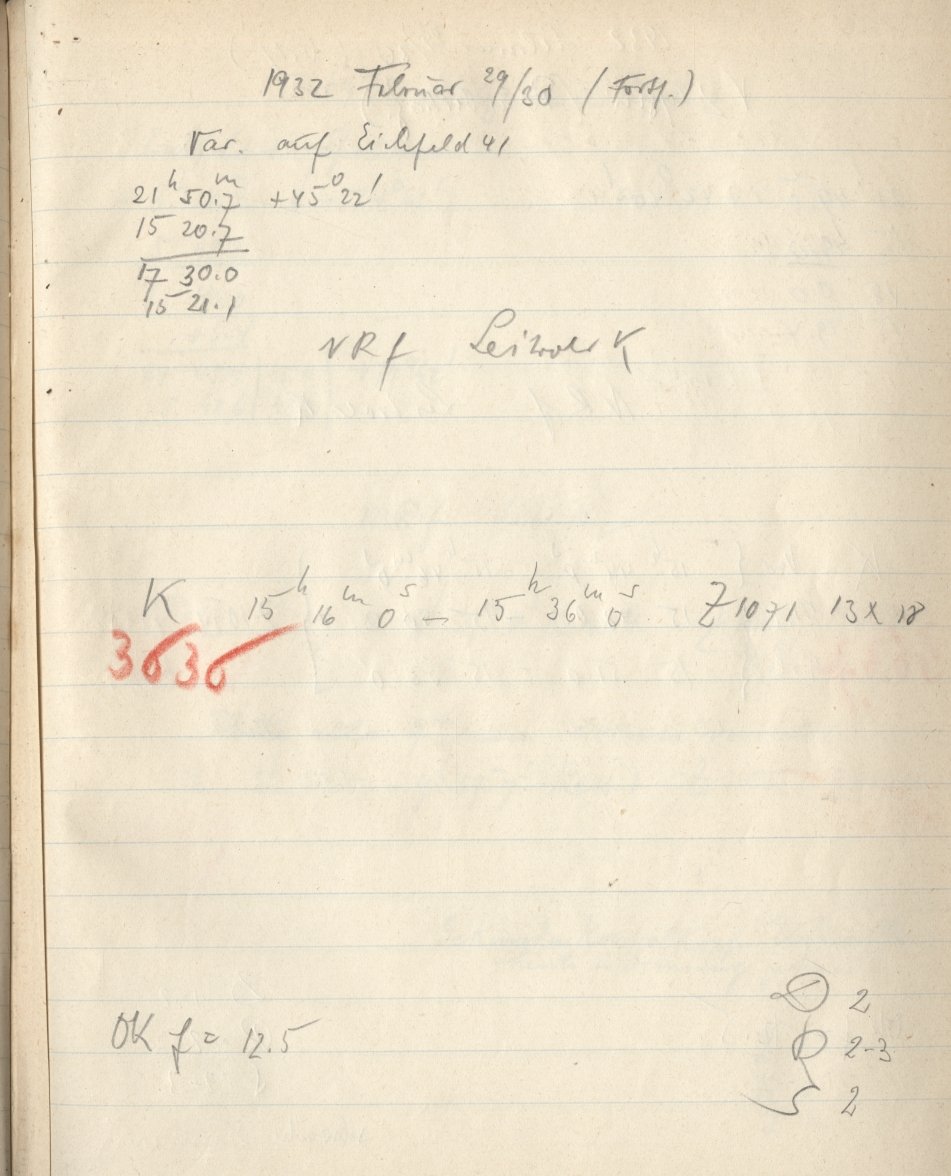 1932 Februar 29/30 (Forts.)
Var. auf Eichfeld 41
21ʰ 50.7ᵐ +45° 22'
15 20.7
17 30.0
15 21.1
K 15ʰ 16ᵐ 0ˢ – 15ʰ 36ᵐ 0ˢ Z 1071 13 x 18
3636
2
OK f = 12.5
2-3
2